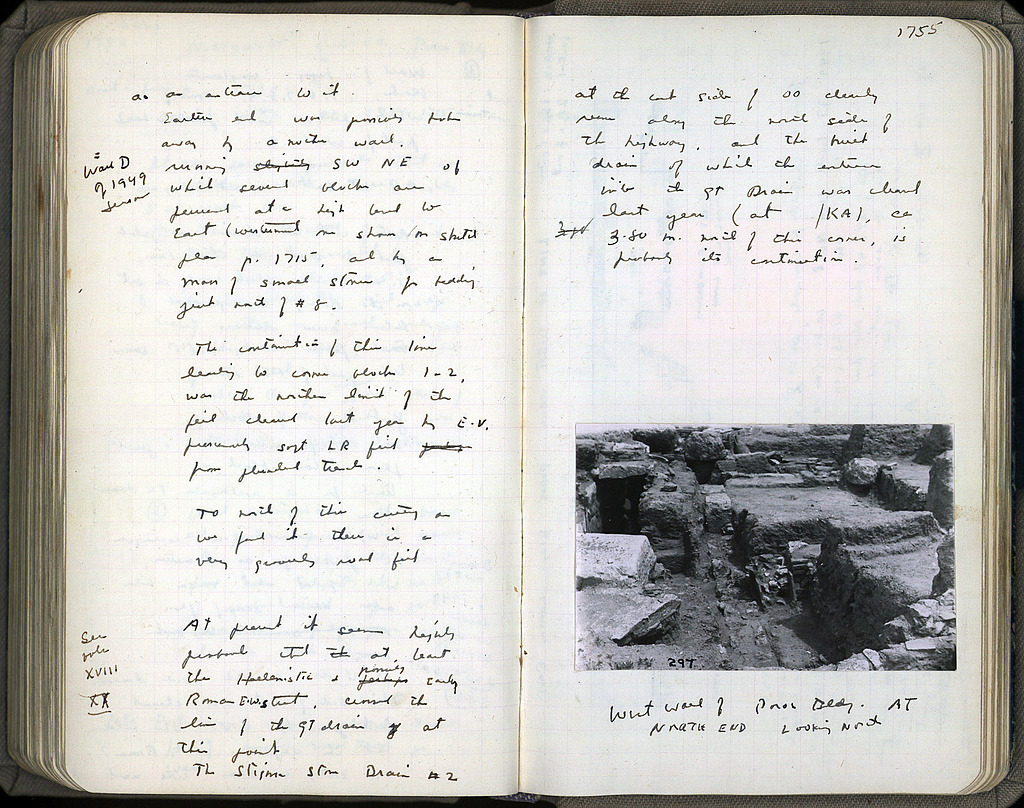 as an entrance to it.
Eastern end was possibly
away by another wall.
running slightly SW NE of
which several blocks are
at a high level to
East ( one shown on sketch
plan p. 1715, and by a
mass of small stones for bedding
just north of # 8.
= Wall D
of 1949
season
The continuation of this line
leading to corner blocks 1-2,
was the northern limit of the
fill cleared last year by E.V.
presumably soft LR fill
from plundered trench.
To north of this cutting as
we find it there is a
very gravelly road fill
At present it seems highly
probable that at least
the Hellenistic & possibly perhaps Early
Roman E-W street, crossed the
line of the GT drain at
this point
The Stigma Stone Drain # 2
See
XVIII
XX
1755
at the east side of OO clearly
runs along the north side of
the highway, and the built
drain of which the entrance
into the GT Drain was cleared
last year (at /KA), ca
3.80 m. north of this corner, is
probably its continuation.
297
West wall of Poros Bldg. AT
NORTH END Looking North